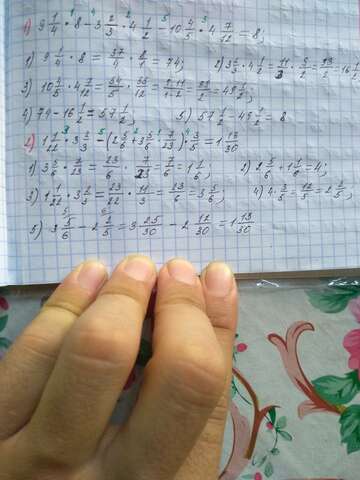 1) 9 1/4 · 8 - 3 2/3 · 4 1/2 - 10 4/5 · 4 7/12 = 8;
1) 9 1/4 · 8 = 37/4 · 8/1 = 74; 2) 3 2/3 · 4 1/2 = 11/3 · 9/2 = 33/2 = 16 1/
3) 10 4/5 · 4 7/12 = 54/5 · 55/12 = 9·11/1·2 = 99/2 = 49 1/2;
4) 74 - 16 1/2 = 57 1/2; 5) 57 1/2 - 49 1/2 = 8
2) 1 1/22 · 3 2/3 - (2 5/6 + 3 5/6 · 7/23) · 3/5 = 1 13/30
1) 3 5/6 · 7/23 = 23/6 · 7/23 = 7/6 = 1 1/6; 2) 2 5/6 + 1 1/6 = 4;
3) 1 1/22 · 3 2/3 = 23/22 · 11/3 = 23/6 = 3 5/6; 4) 4 · 3/5 = 12/5 = 2 2/5;
5) 3 5/6 - 2 2/5 = 3 25/30 - 2 12/30 = 1 13/30